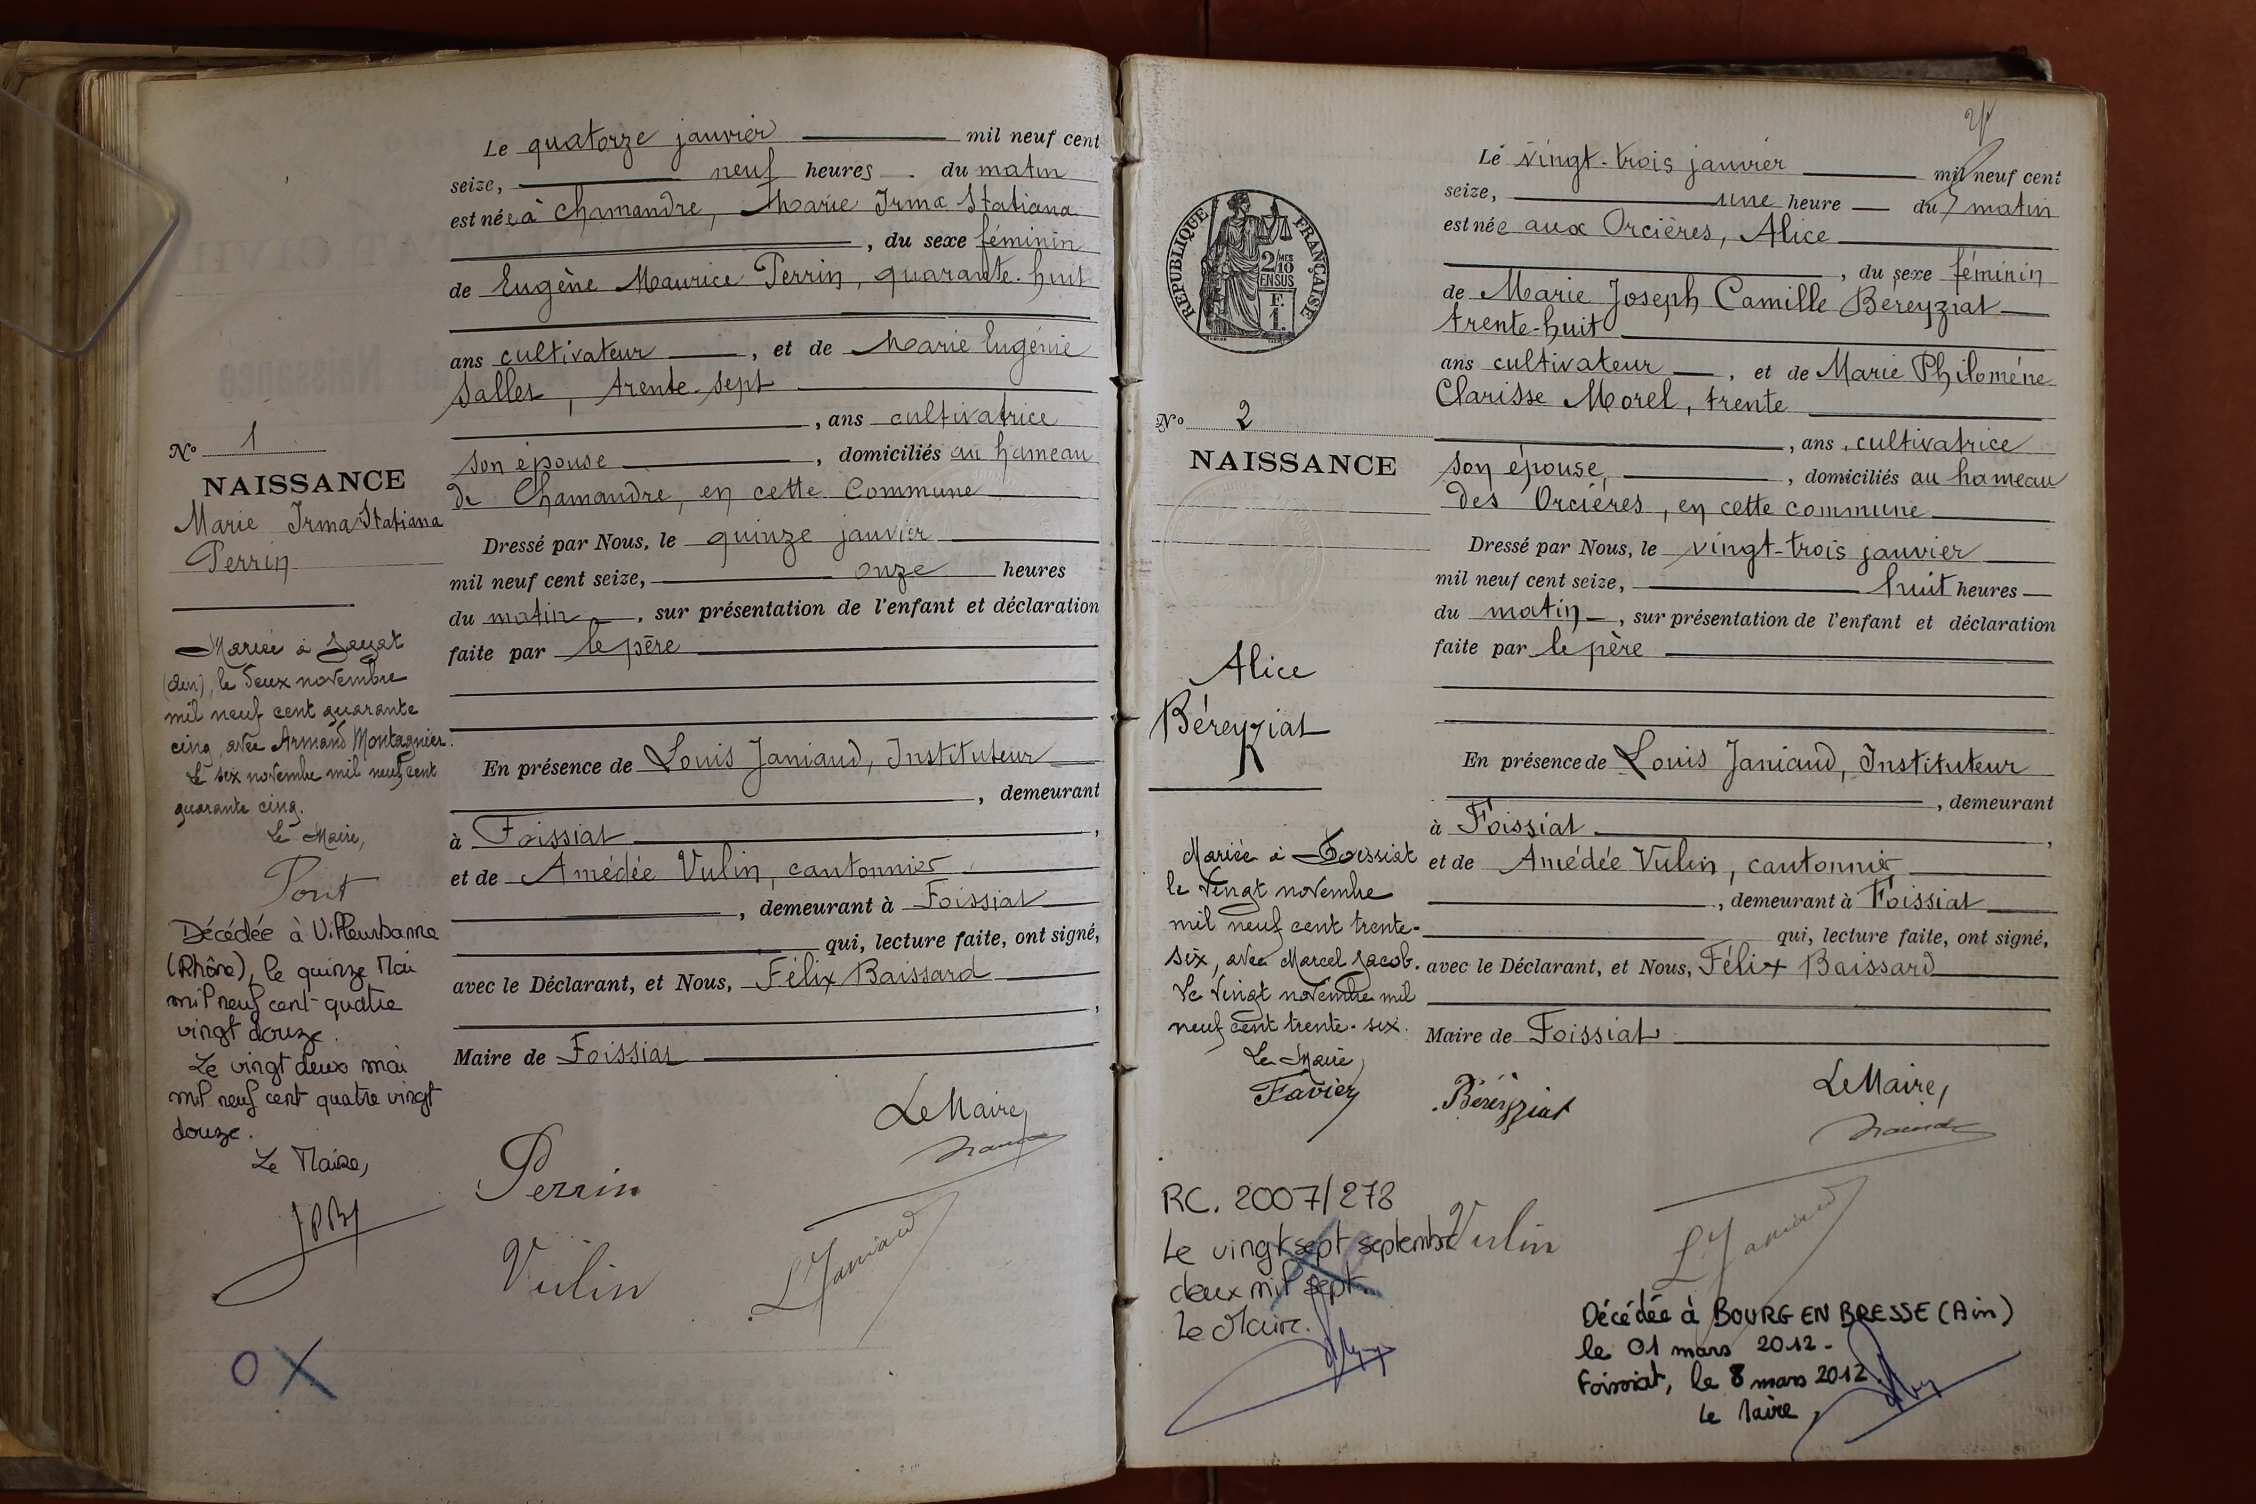 Le quatorze janvier mil neuf cent
seize, neuf heures du matin
est née à Chamandre, Marie Irma Statiana
, du sexe féminin
de Eugène Maurice Perrin, quarante-huit
ans cultivateur, et de Marie Eugénie
Sallet, trente-sept
, ans cultivatrice
son épouse, domiciliés au hameau
de Chamandre, en cette Commune
Dressé par Nous, le quinze janvier
mil neuf cent seize, onze heures
du matin, sur présentation de l'enfant et déclaration
faite par le père
En présence de Louis Janiaud, Instituteur
, demeurant
à Foissiat,
et de Amédée Vulin, cantonnier
, demeurant à Foissiat
qui, lecture faite, ont signé,
avec le Déclarant, et Nous, Félix Baissard
,
Maire de Foissiat
Le Maire,
Perrin
Vulin
L Janiaud
No 1
NAISSANCE
Marie Irma Statiana
Perrin
Mariée à Jayat
(Ain), le deux novembre
mil neuf cent quarante
cinq, avec Armand Montagnier.
Le six novembre mil neuf cent
quarante cinq.
Le Maire,
Pont
Décédée à Villeurbanne
(Rhône), le quinze Mai
mil neuf cent quatre
vingt douze.
Le vingt deux mai
mil neuf cent quatre vingt
douze.
Le Maire,
O X
Le vingt-trois janvier mil neuf cent
seize, une heure du matin
est née aux Orcières, Alice
, du sexe féminin
de Marie Joseph Camille Béreyziat
trente-huit
ans cultivateur, et de Marie Philomène
Clarisse Morel, trente
, ans, cultivatrice
son épouse, domiciliés au hameau
des Orcières, en cette commune
Dressé par Nous, le vingt-trois janvier
mil neuf cent seize, huit heures
du matin, sur présentation de l'enfant et déclaration
faite par le père
En présence de Louis Janiaud, Instituteur
, demeurant
à Foissiat,
et de Amédée Vulin, cantonnier
, demeurant à Foissiat
qui, lecture faite, ont signé,
avec le Déclarant, et Nous, Félix Baissard
Maire de Foissiat
Le Maire,
Béreyziat
Vulin
L Janiaud
REPUBLIQUE FRANÇAISE
2/10 MES
EN SUS
F.
1.
No 2
NAISSANCE
Alice
Béreyziat
Mariée à Foissiat
le vingt novembre
mil neuf cent trente-
six, avec Marcel Jacob.
Le vingt novembre mil
neuf cent trente-six.
Le Maire,
Favier
RC. 2007/278
Le vingt sept septembre
deux mil sept.
Le Maire.
Décédée à BOURG EN BRESSE (Ain)
le 01 mars 2012 -
Foissiat, le 8 mars 2012
Le Maire,